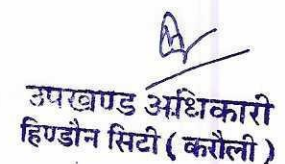 उपखण्ड अधिकारी
हिण्डौन सिटी ( करौली )